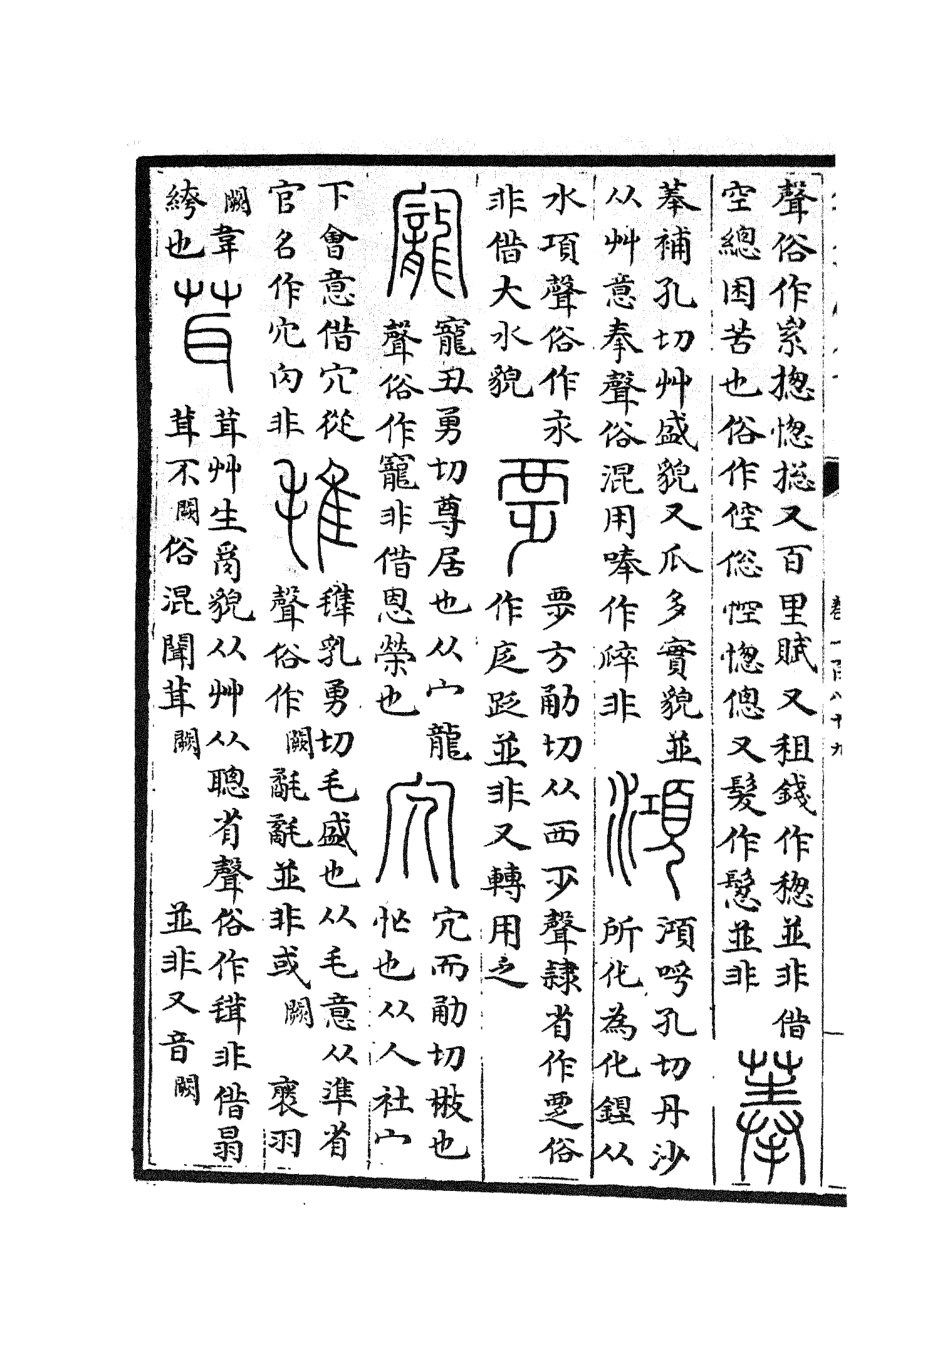 聲俗作綤揔惚摠又百里賦又租錢作稯並非借
空總困苦也俗作倥傯悾惚傯又髮作鬆並非
菶
菶補孔切艸盛貌又瓜多實貌並
从艸意奉聲俗混用唪作㵨非
澒
澒呼孔切丹沙
所化為化鋞从
水項聲俗作汞
非借大水貌
覂
覂方勈切从西乏聲隷省作覂俗
作庋跁並非又轉用之
寵
寵丑勇切尊居也从宀龍
聲俗作寵非借恩榮也
宂
宂而勈切㪔也
忙也从人社宀
下會意借宂從
官名作宂內非
㲝
㲝乳勇切毛盛也从毛意从準省
聲俗作闕毹氄並非或闕襃羽
闕韋
絝也
茸
茸艸生𦱤貌从艸从聰省聲俗作䇯非借搨
茸不闕俗混闒茸闕並非又音闕
卷一百八十九